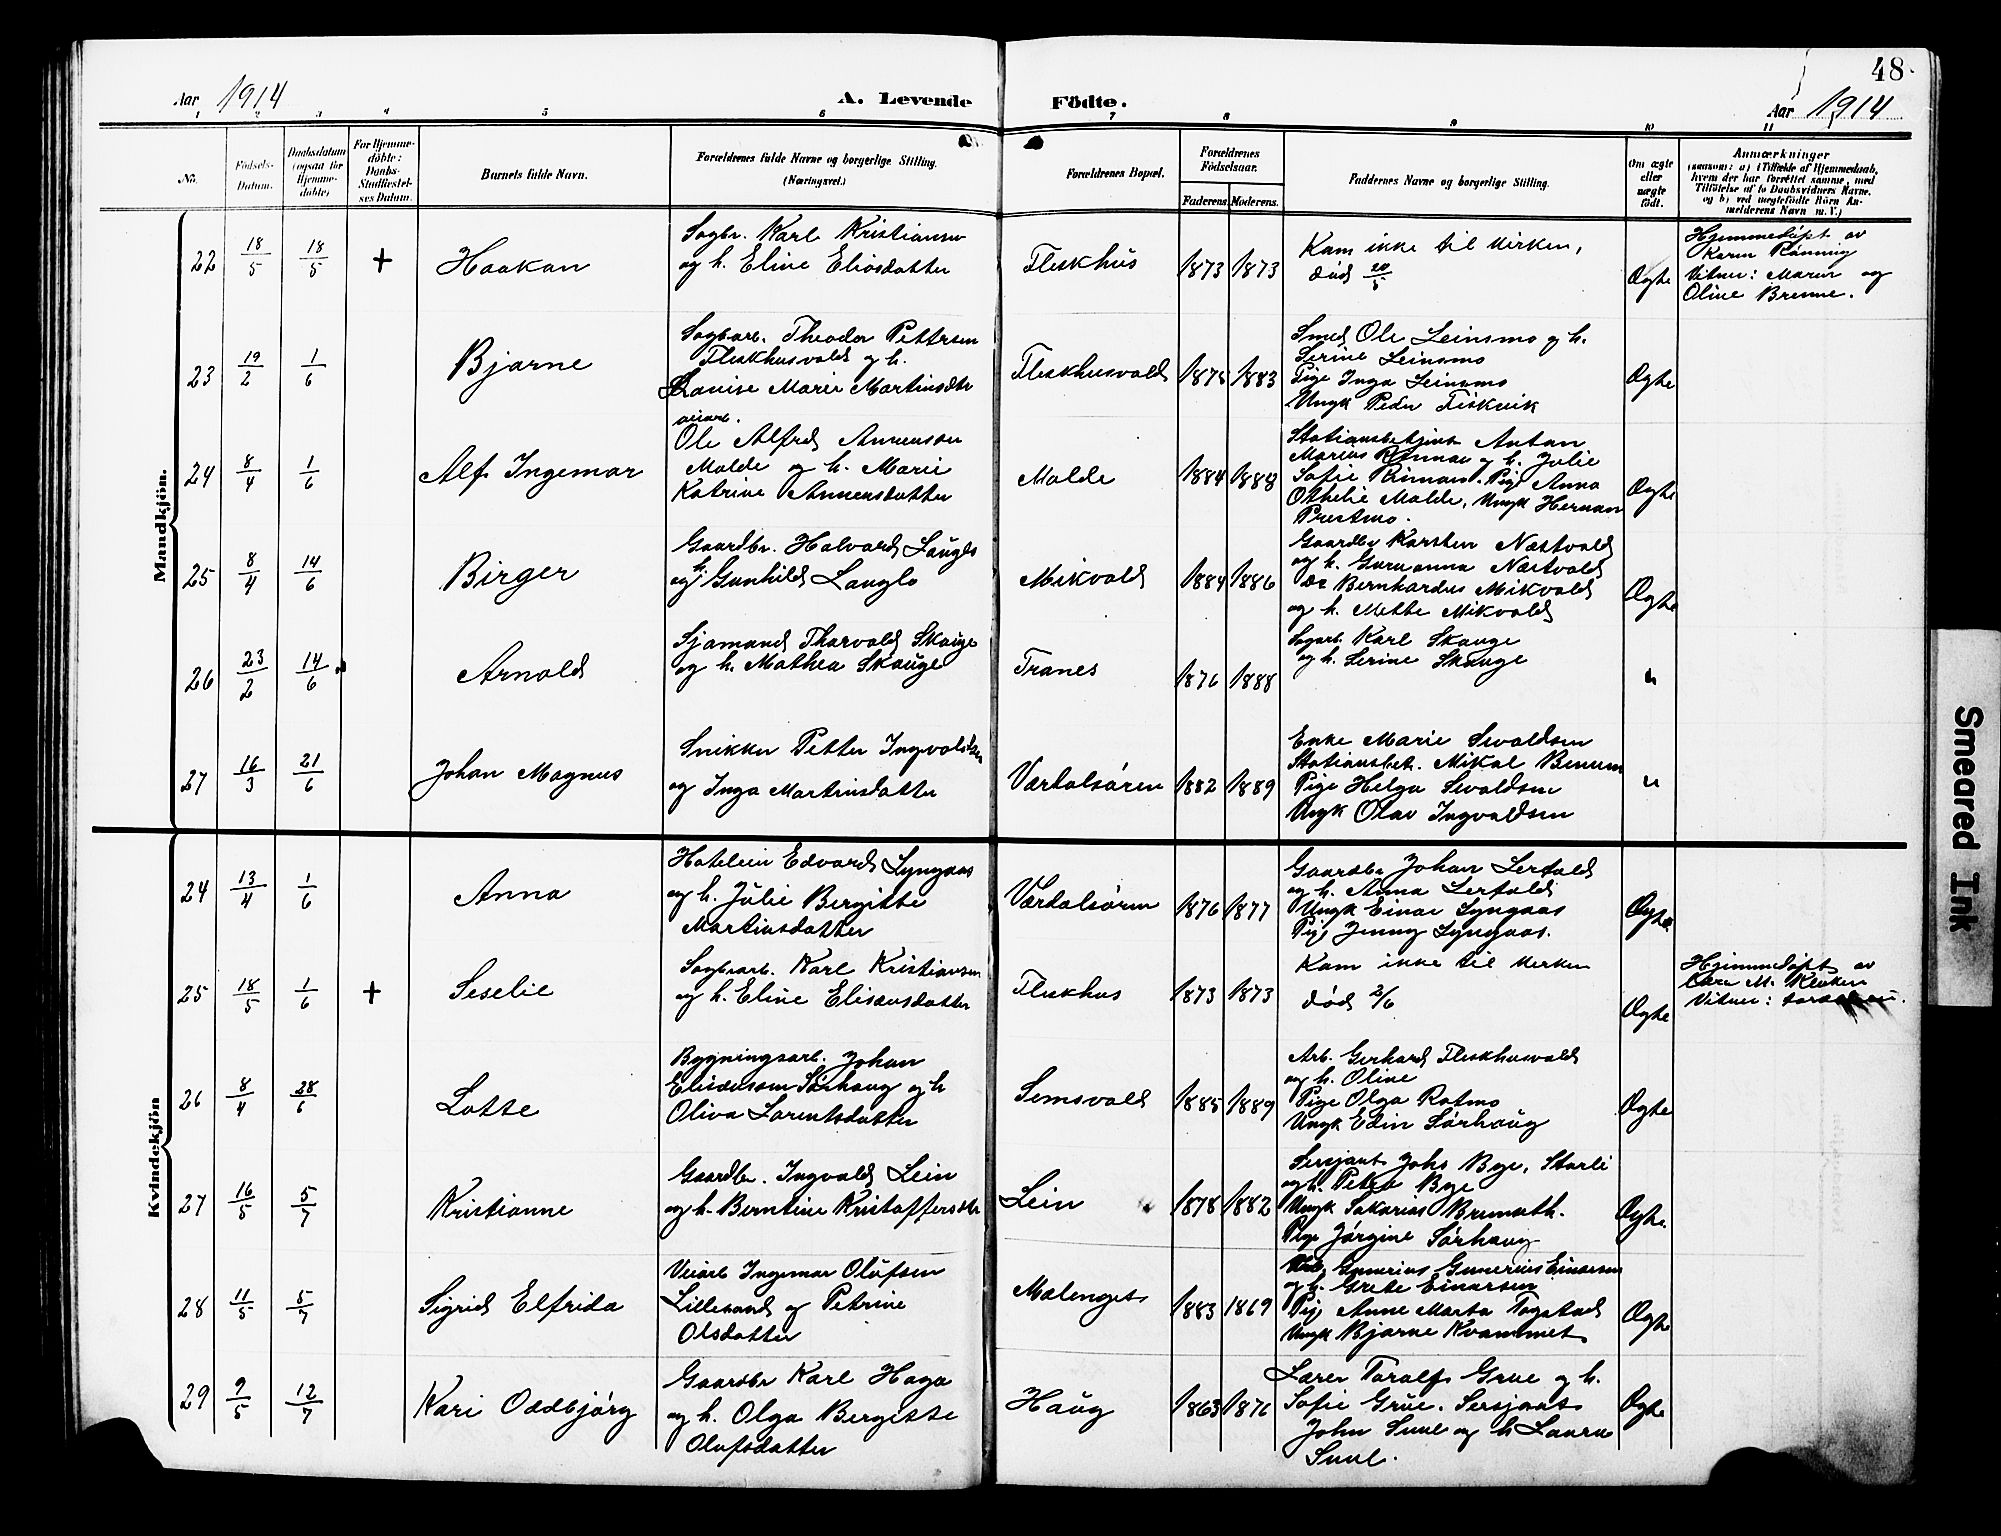 48
Aar 1914 A. Levende Födte. Aar 1914
1 2 3 4 5 6 7 8 9 10 11
No.
Födsels-
Datum.
Daabsdatum
(ogsaa for
Hjemme-
döbte)
For Hjemme-
döbte:
Daabs-
Stadfæstel-
ses Datum.
Barnets fulde Navn.
Forældrenes fulde Navne og borgerlige Stilling.
(Næringsvei.)
Forældrenes Bopæl.
Forældrenes
Födselsaar.
Faderens. Moderens.
Faddernes Navne og borgerlige Stilling.
Om ægte
eller
uægte
födt.
Anmærkninger
(saasom: a) i Tilfælde af Hjemmedaab,
hvem der har forrettet samme, med
Tilföielse af to Daabsvidners Navne,
og b) ved uægtefödte Börn An-
melderens Navn m. V.)
Mandkjön.
22 18/5 18/5 + Haakon
Sagbr. Karl Kristiansen
og h. Eline Eliosdatter
Fleskhus 1873 1873
Kom ikke til kirken,
død 20/5
Ægte
Hjemmedøpt av
Karen Rønning
Vitner: Maren og
Oline Brenne.
23 19/2 1/6 Bjarne
Sagbarb. Theodor Pettersen
Fleskhusvald og h.
Lovise Marie Martinsdtr
Fleskhusvald 1875 1883
Smed Ole Leinsmo og h.
Serine Leinsmo
Pige Inga Leinsmo
Ungk Peder Fiskvik
Ægte
24 8/4 1/6 Alf Ingemar
veiarb.
Ole Alfred Annensen
Molde og h. Marie
Katrine Annensdatter
Molde 1884 1888
Stationsbetjent Anton
Marius Rinnan og h. Julie
Sofie Rinnan. Pige Anna
Othelie Molde, Ungk Herman
Prestmo.
Ægte
25 8/4 14/6 Birger
Gaardbr. Halvard Langlo
og h. Gunhild Langlo
Mikvold 1884 1886
Gaardbr Karsten Næstvold
og h. Gurunanna Næstvold
do Bernhardus Mikvold
og h. Mette Mikvold
Ægte
26 23/2 14/6 Arnold
Sjømand Thorvald Skauge
og h. Mathea Skauge
Tranes 1876 1888
Sagarb. Karl Skauge
og h. Serine Skauge
"
27 16/3 21/6 Johan Magnus
Snikker Petter Ingvaldsen
og Inga Martinsdatter
Værdalsøren 1882 1889
Enke Marie Sivaldsen
Stationsbet. Mikal Benum
Pige Helga Sivaldsen
Ungk Olav Ingvaldsen
"
Kvindekjön
24 13/4 1/6 Anna
Hoteleier Edvard Lyngaas
og h. Julie Bergitte
Martinsdatter
Værdalsøren 1876 1877
Gaardbr Johan Lerfald
og h. Anna Lerfald
Ungk Einar Lyngaas
Pige Jenny Lyngaas.
Ægte
25 18/5 1/6 + Seselie
Sagbrarb. Karl Kristiansen
og h. Eline Eliseusdatter
Fleskhus 1873 1873
Kom ikke til kirken
død 2/6
Ægte
Hjemmedøpt av
Vitner:
26 8/4 28/6 Lotte
Bygningsarb. Johan
Eliseussen Sørhaug og h
Oliva Lorentsdatter
Semsvald 1885 1889
Arb. Gerhard Fleskhusvald
og h. Oline
Pige Olga Rotmo
Ungk Edin Sørhaug
Ægte
27 16/5 5/7 Kristianne
Gaardbr. Ingvald Lein
og h. Berntine Kristoffersdtr
Lein 1878 1882
Sersjant Johs Bye, Starli
og h. Petra Bye
Ungk Sakarias Bremseth.
Pige Jørgine Sørhaug
Ægte
28 11/5 5/7 Sigrid Elfrida
Veiarb Ingemar Olufsen
Lillesand og Petrine
Olsdatter
Malenget 1883 1869
Gunerius Einarsen
og h. Grete Einarsen
Pige Anne Marta Tagstad
Ungk Bjarne Kvammet
Ægte
29 9/5 12/7 Kari Oddbjørg
Gaardbr Karl Haga
og h. Olga Bergitte
Olufsdatter
Haug 1863 1876
Lærer Toralf Grue og h.
Sofie Grue. Sersjant
John Suul og h Laura
Suul.
Ægte
Smeared Ink